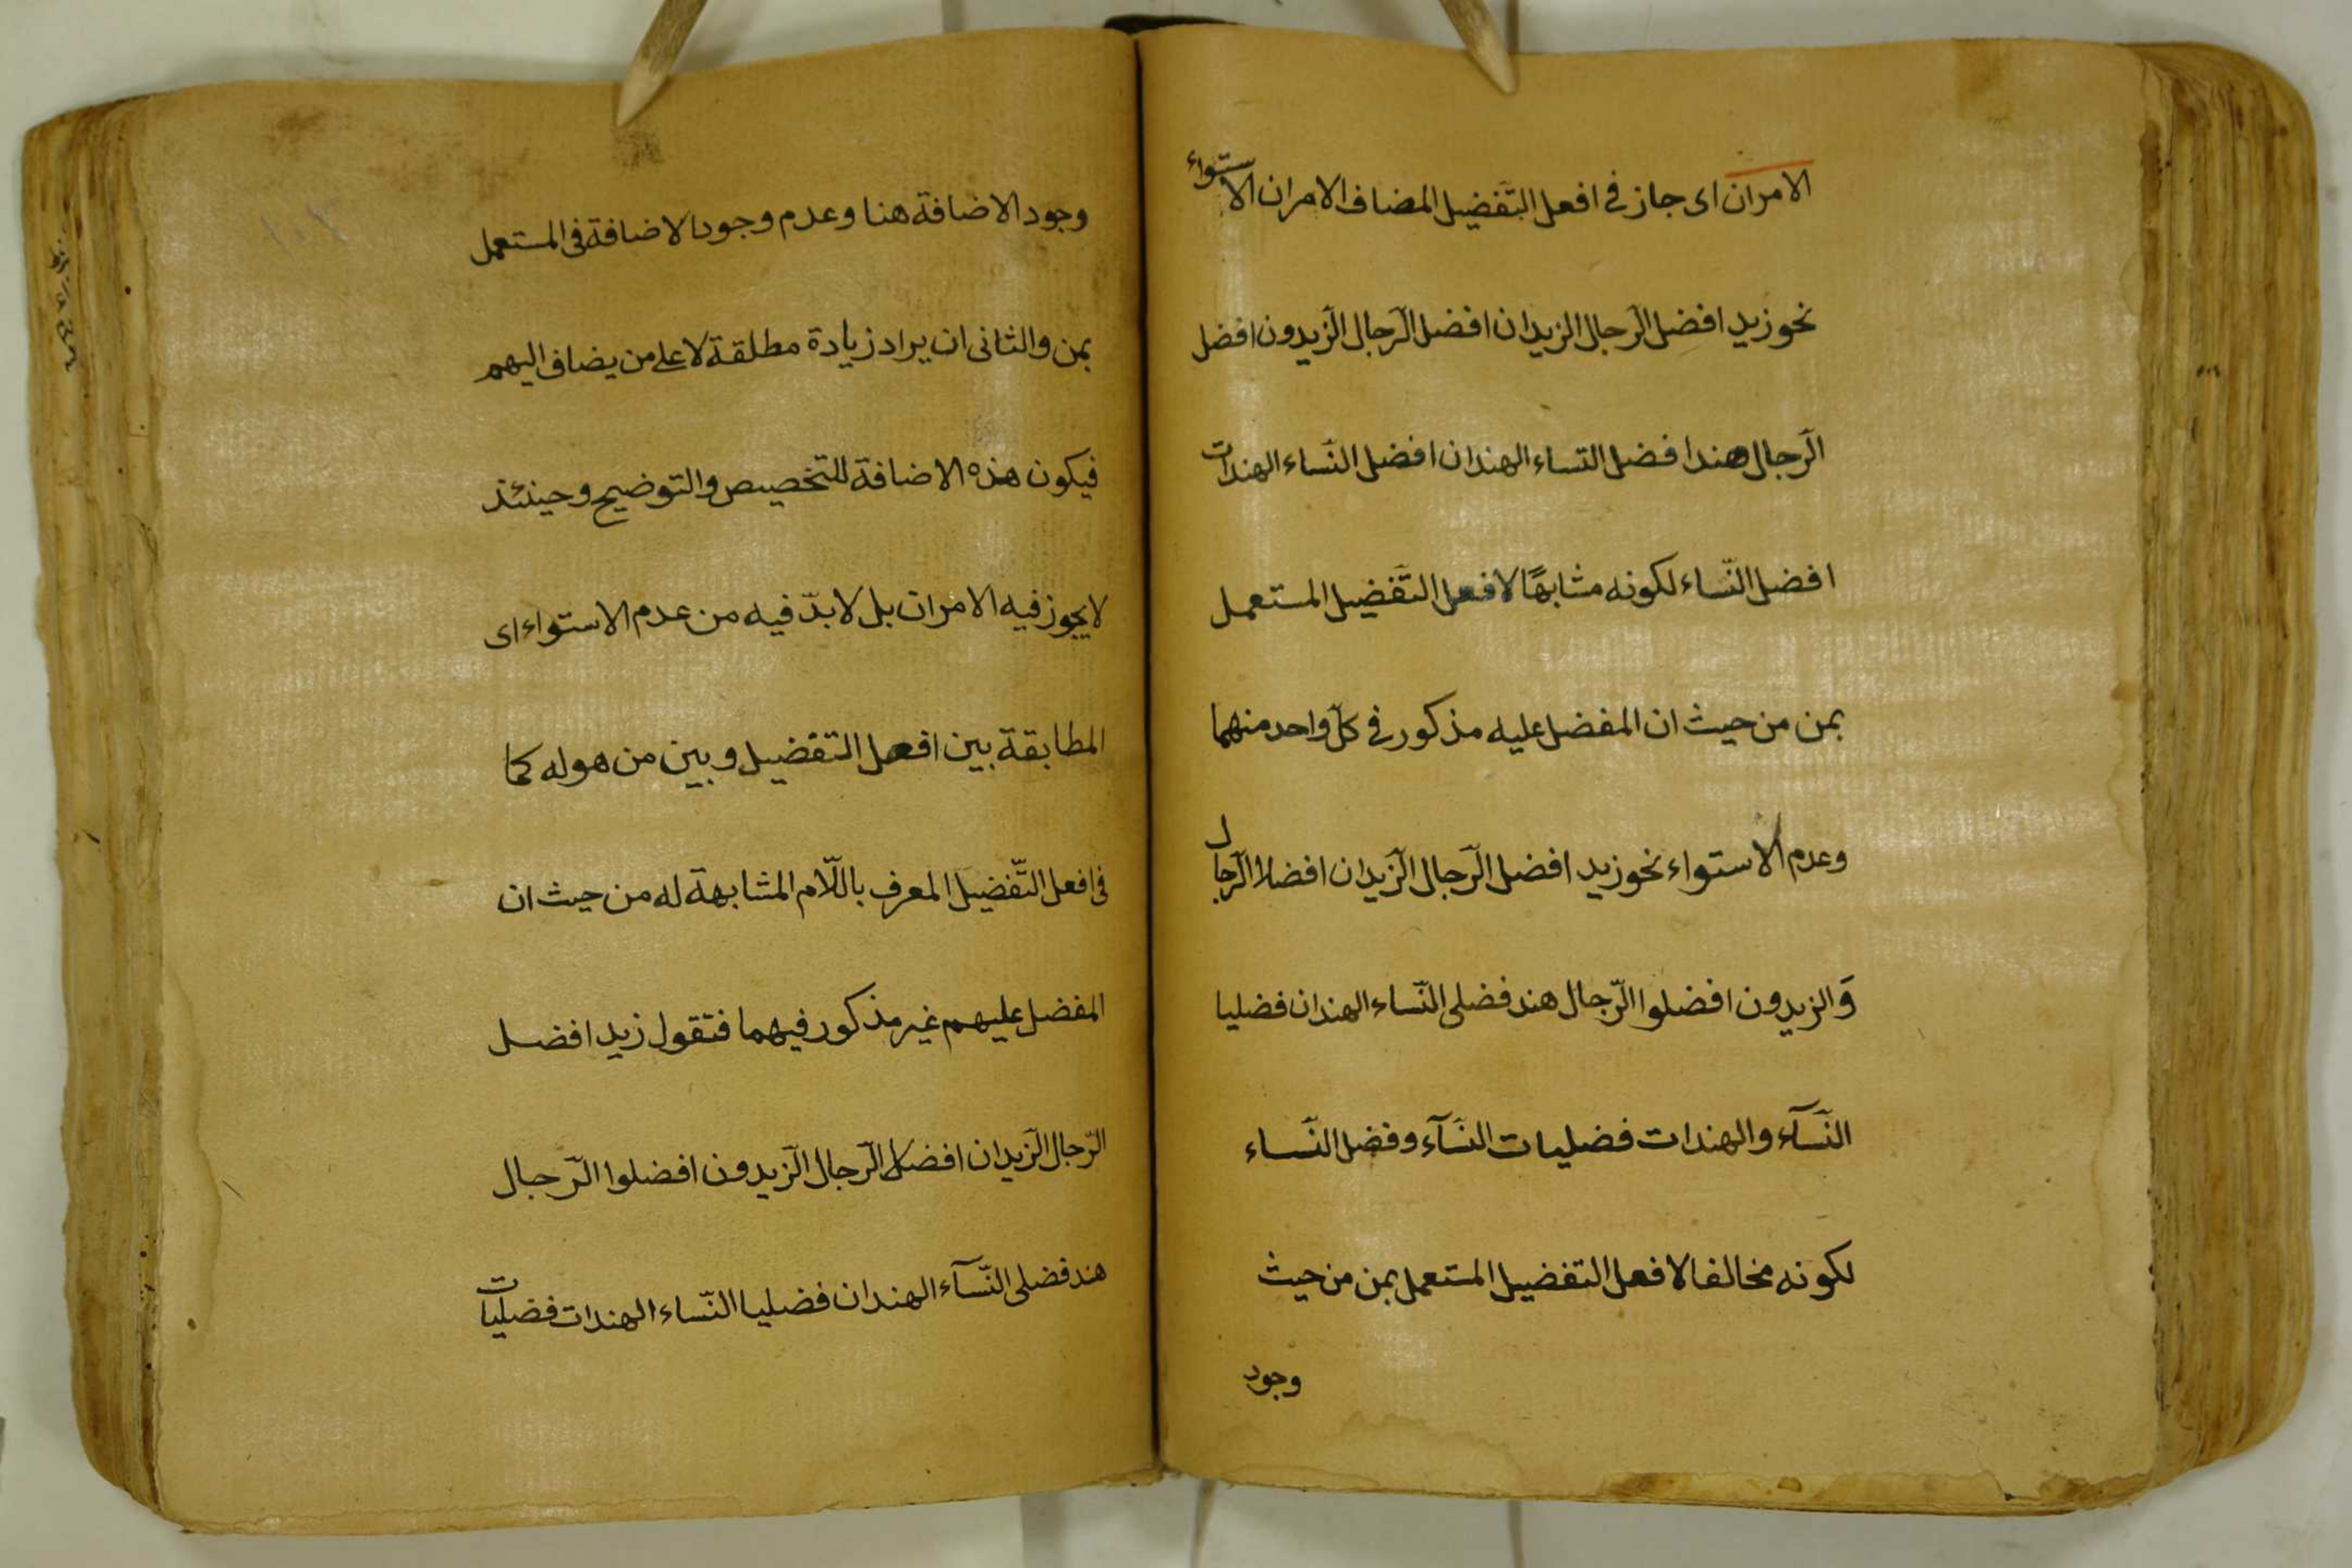 الامران اى جاز فى افعل التفضيل المضاف الامران الاستواء
نحو زيد افضل الرّجال الزيدان افضل الرّجال الزّيدون افضل
الرّجال هند افضل النساء الهندان افضل النّساء الهندات
افضل النّساء لكونه مشابهًا لافعل التّفضيل المستعمل
بمن من حيث ان المفضل عليه مذكور فى كلّ واحد منهما
وعدم الاستواء نحو زيد افضل الرّجال الزّيدان افضلا الرّجال
وَالزيدون افضلوا الرّجال هند فضلى النّساء الهندان فضليا
النّسآء والهندات فضليات النّسآء وفضل النّساء
لكونه مخالفا لافعل التفضيل المستعمل بمن من حيث
وجود
وجود الاضافة هنا وعدم وجود الاضافة فى المستعمل
بمن والثانى ان يراد زيادة مطلقة لا على من يضاف اليهم
فيكون هذه الاضافة للتخصيص والتوضيح وحينئذ
لا يجوز فيه الامران بل لا بدّ فيه من عدم الاستواء اى
المطابقة بين افعل التفضيل وبين من هو له كما
فى افعل التّفضيل المعرف باللّام المشابهة له من حيث ان
المفضل عليهم غير مذكور فيهما فتقول زيد افضل
الرّجال الزّيدان افضلا الرّجال الزّيدون افضلوا الرّجال
هند فضلى النّسآء الهندان فضليا النّساء الهندات فضليات